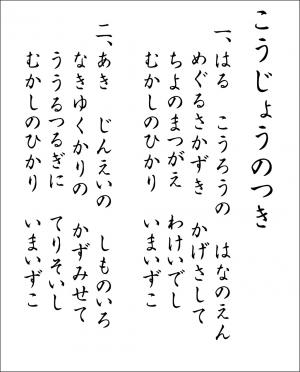 こうじょうのつき
一、はる　こうろうの　はなのえん
めぐるさかずき　かげさして
ちよのまつがえ　わけいでし
むかしのひかり　いまいずこ
二、あき　じんえいの　しものいろ
なきゆくかりの　かずみせて
ううるつるぎに　てりそいし
むかしのひかり　いまいずこ